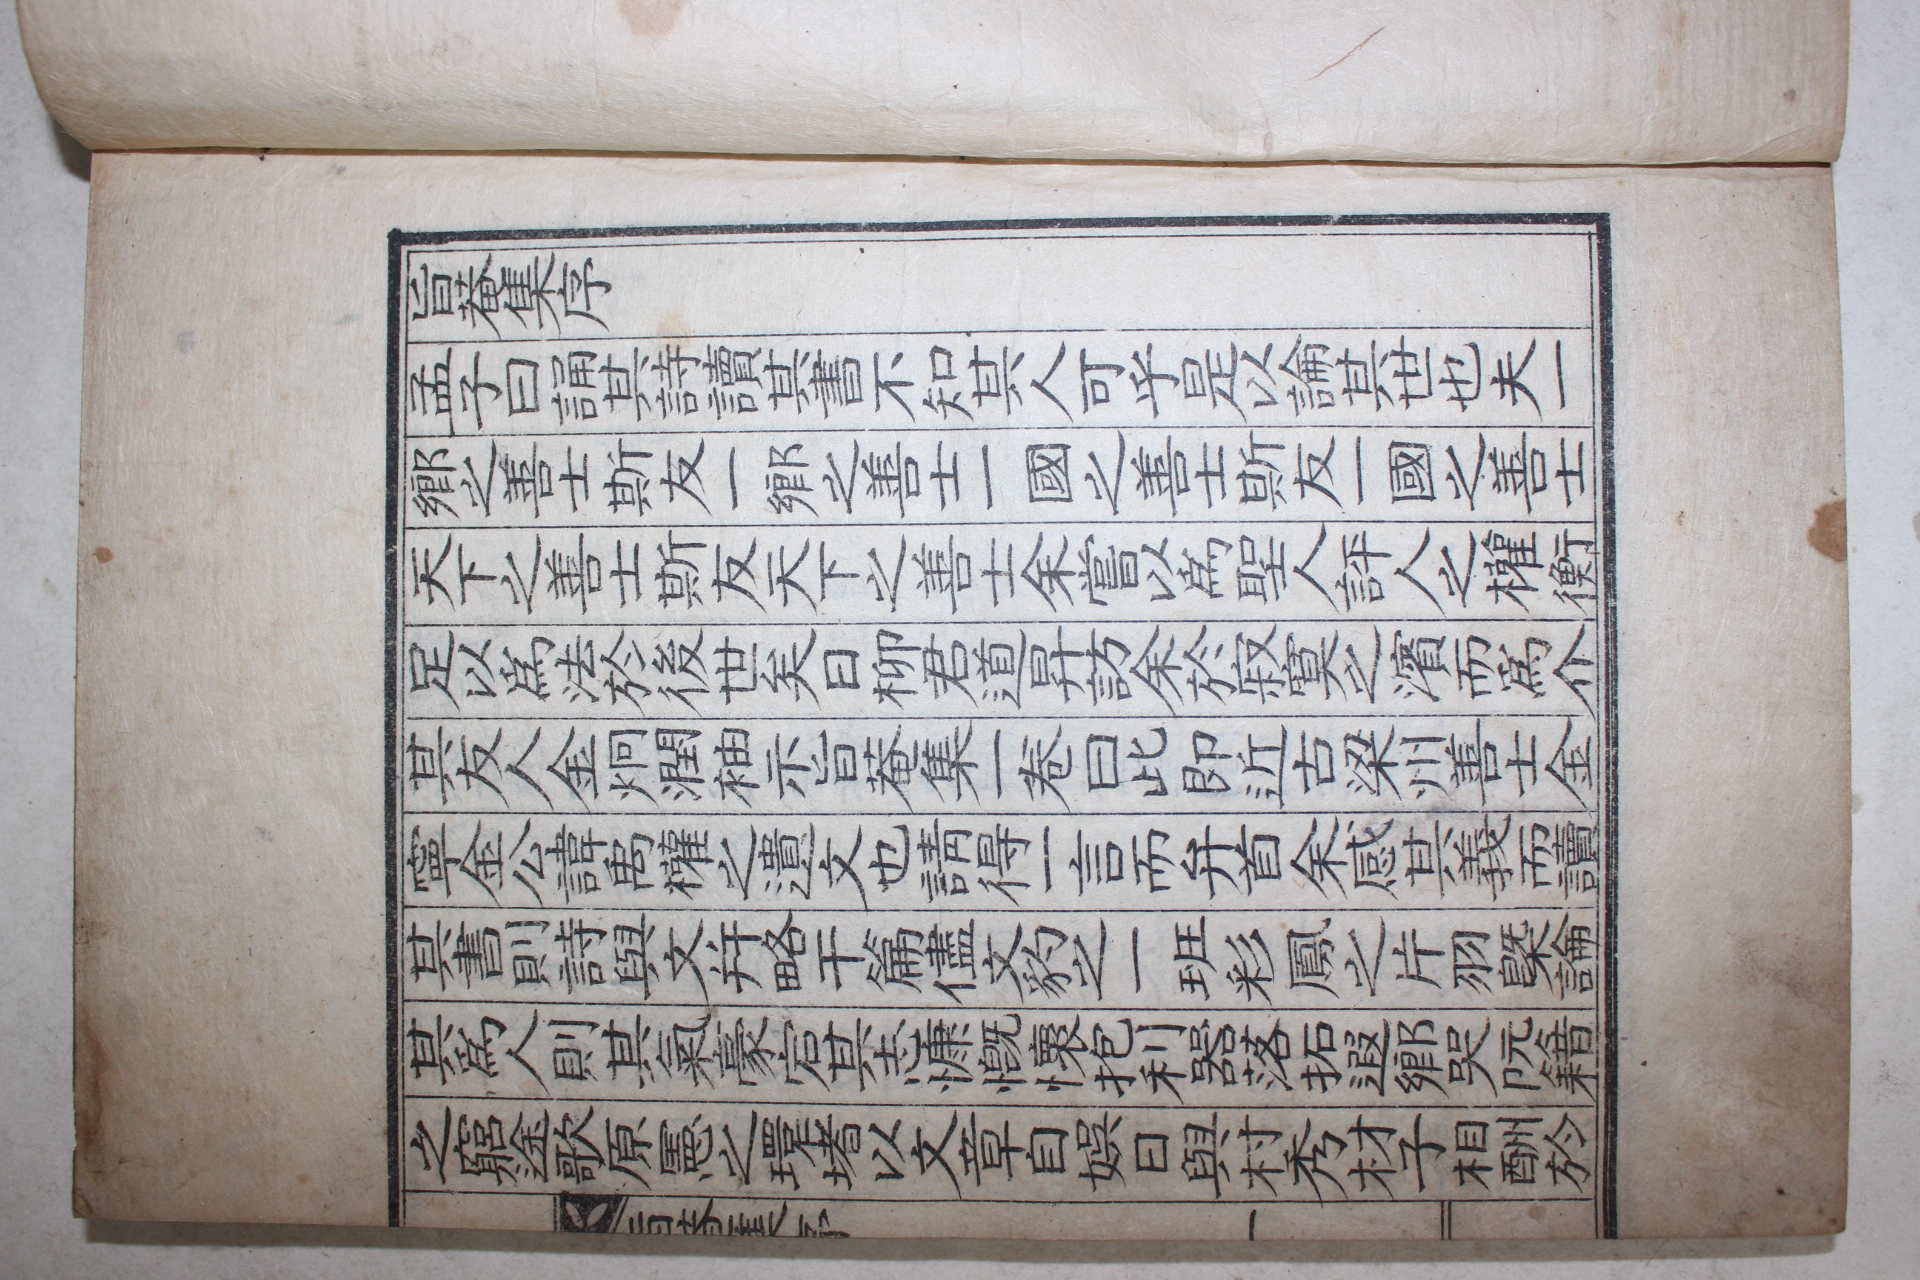 旨菴集序
孟子曰誦其詩讀其書不知其人可乎是以論其世也夫一
鄉之善士斯友一鄉之善士一國之善士斯友一國之善士
天下之善士斯友天下之善士余嘗以爲聖人評人之權衡
足以爲法於後世矣日柳君道昇訪余於寂寞之濱而爲介
其友人金炯潤袖示旨菴集一卷曰此卽近古梁州善士金
寧金公諱禹權之遺文也請得一言而弁首余感其義而讀
其書則詩與文幷略干篇儘文豹之一班彩鳳之片羽槩論
其爲人則其氣豪宕其志慷慨懷抱利器落拓遐鄉哭阮籍
之窮途歌原憲之環堵以文章自娛日與村秀材子相酬於
旨菴集序
一